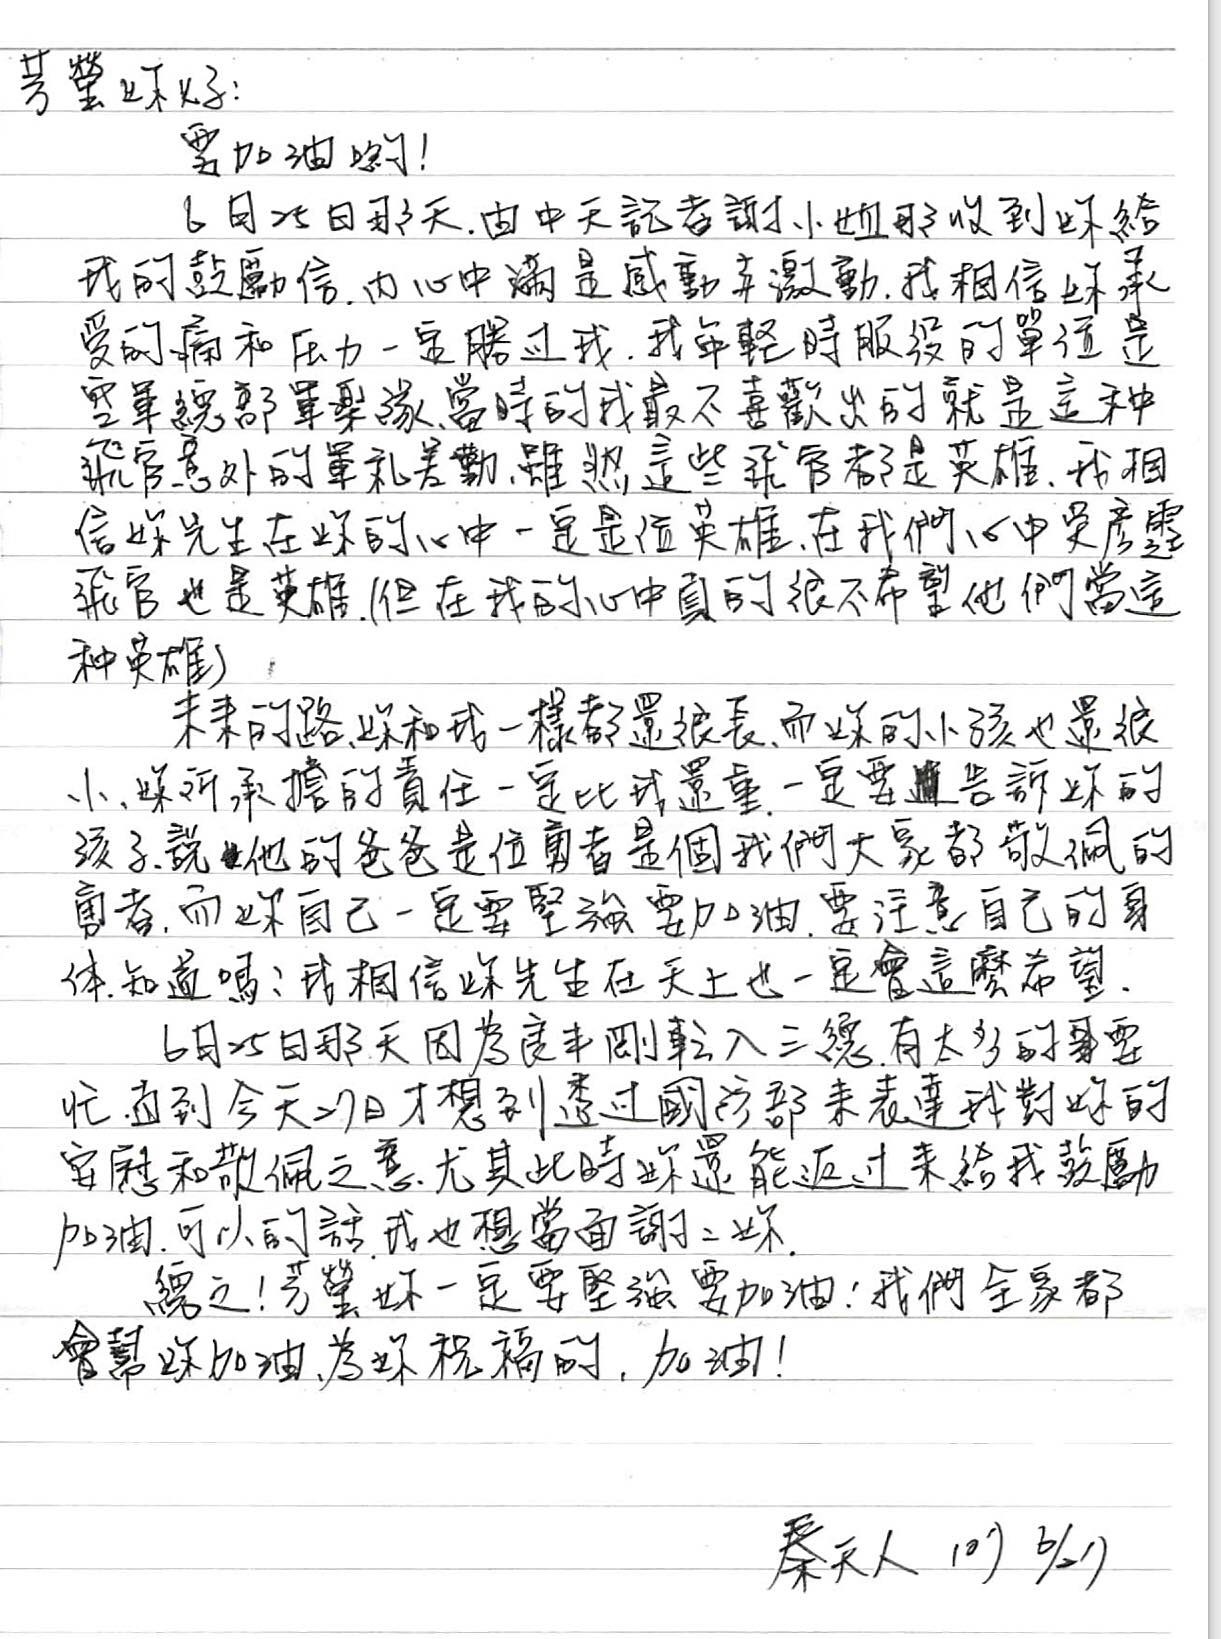 芳瑩妳好:
要加油喲!
6月25日那天.由中天記者謝小姐那收到妳給
我的鼓勵信.內心中滿是感動弃激動.我相信妳承
受的痛和压力一定勝过我.我年輕時服役的單位是
空軍總部軍樂隊、當時的我最不喜歡出的就是這种
飛官意外的軍礼差勤、雖然這些飛官都是英雄.我相
信妳先生在妳的心中一定是位英雄、在我們心中吳彥霆
飛官也是英雄.(但在我的心中真的很不希望他們當這
种英雄)
未來的路、妳和我一樣都還很長、而妳的小孩也還很
小、妳所承擔的責任一定比我還重.一定要告訴妳的
孩子.說他的爸爸是位勇者是個我們大家都敬佩的
勇者.而妳自己一定要堅強要加油.要注意自己的身
体.知道嗎;我相信妳先生在天上也一定會這麼希望.
6月25日那天因為良丰剛転入三總.有太多的事要
忙.直到今天27日才想到透过國防部來表達我對妳的
安慰和敬佩之意.尤其此時妳還能返过來給我鼓勵
加油.可以的話.我也想當面謝二妳.
總之!芳瑩妳一定要堅強要加油!我們全家都
會幫妳加油、為妳祝福的.加油!
秦天人 107 6/27